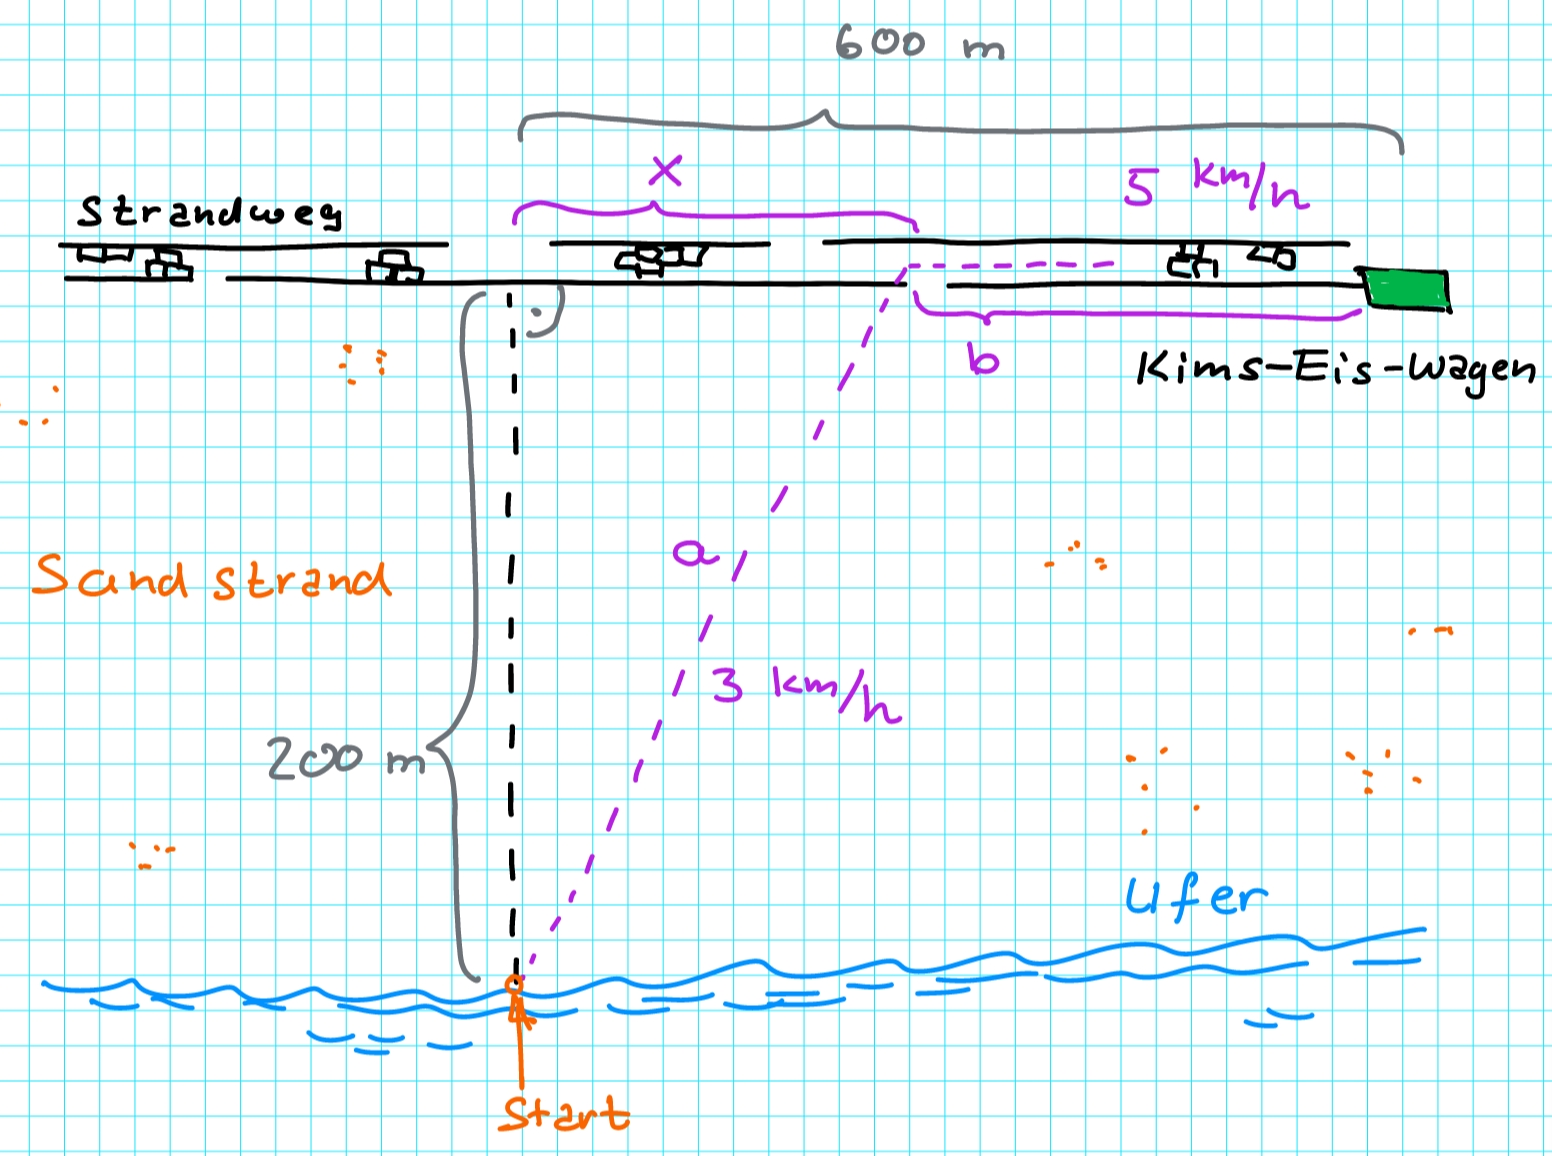 600 m
x
5 km/h
Strandweg
b
Kims-Eis-Wagen
a
Sandstrand
3 km/h
200 m
Ufer
Start